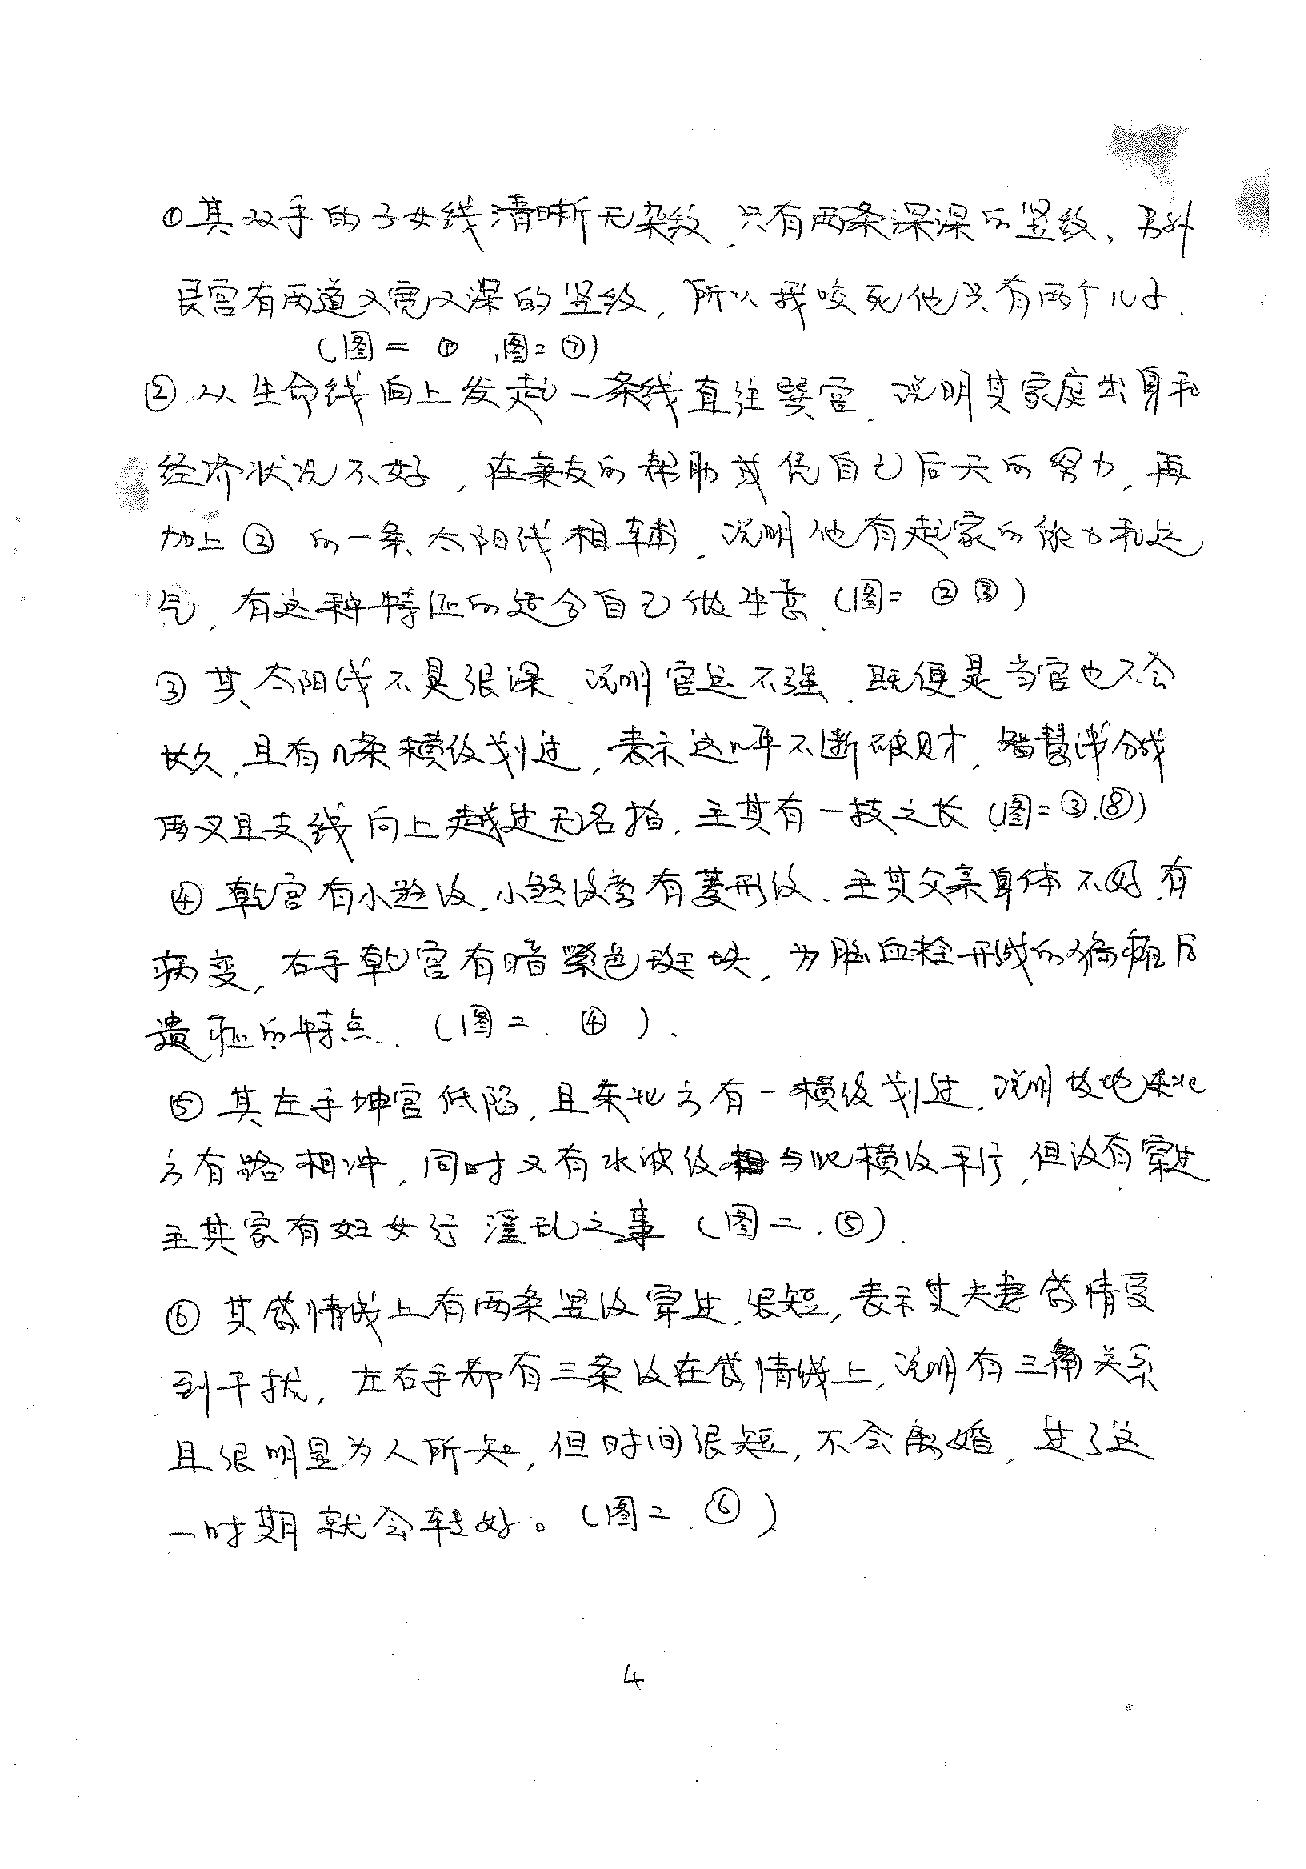 ①其双手的子女线清晰无杂纹,只有两条深深的竖纹、另外
艮宫有两道又宽又深的竖纹,所以我咬死他只有两个儿子.
(图二 ① ,图二 ⑦)
②从生命线向上发起一条线直往巽宫,说明其家庭出身和
经济状况不好,在亲友的帮助或凭自己后天的努力,再
加上③的一条太阳线相辅,说明他有起家的能力和运
气,有这种特征的适合自己做生意(图二 ②③)
③其太阳线不是很深,说明官运不强,既便是当官也不会
长久,且有几条横纹划过,表示这几年不断破财,智慧线分成
两叉且支线向上越过无名指,主其有一技之长(图二③.⑧)
④乾宫有小煞纹,小煞纹旁有菱形纹,主其父亲身体不好,有
病变,右手乾宫有暗紫色斑块,为脑血栓形成的偏瘫后
遗症的特点.(图二.④).
⑤其左手坤宫低陷,且东北方有一横纹划过,说明坟地东北
方有路相冲,同时又有水波纹与此横纹平行,但没有穿过
主其家有妇女行淫乱之事(图二.⑤).
⑥其感情线上有两条竖纹穿过,很短,表示丈夫妻感情受
到干扰,左右手都有三条纹在感情线上,说明有三角关系
且很明显为人所知,但时间很短,不会离婚,过了这
一时期就会转好。(图二.⑥)
4